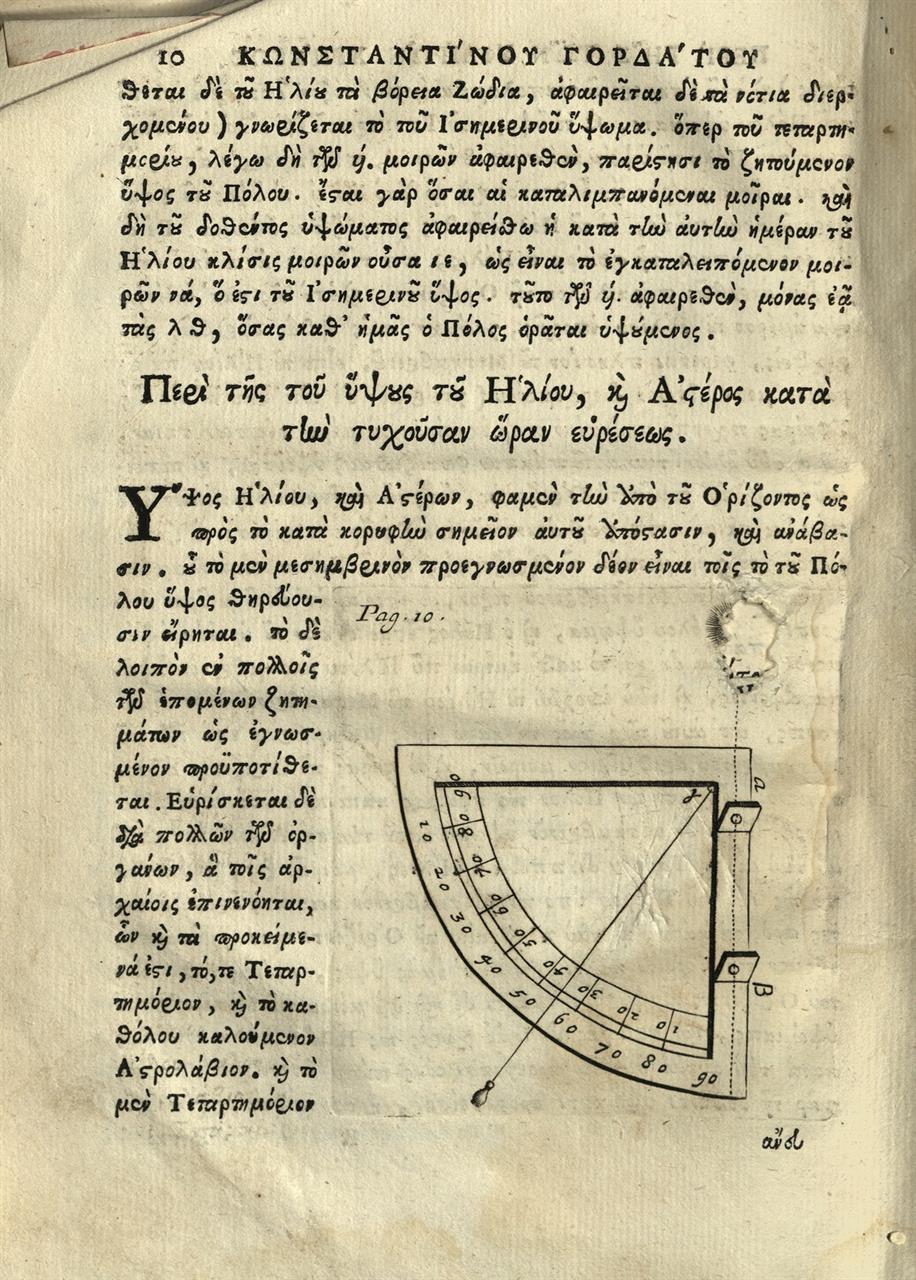 10 ΚΩΝΣΤΑΝΤΙ´ΝΟΥ ΓΟΡΔΑ´ΤΟΥ
θεται δὲ τοῦ Ἡλίου τὰ βόρεια Ζώδια, ἀφαιρεῖται δὲ τὰ νότια διερ-
χομένου) γνωρίζεται τὸ τοῦ Ἰσημερινοῦ ὕψωμα. ὅπερ τοῦ τεταρτη-
μορίου, λέγω δὴ τῶν ϟ. μοιρῶν ἀφαιρεθὲν, παρίστησι τὸ ζητούμενον
ὕψος τοῦ Πόλου. ἔσται γὰρ ὅσαι αἱ καταλιμπανόμεναι μοῖραι. καὶ
δὴ τοῦ δοθέντος ὑψώματος ἀφαιρείσθω ἡ κατὰ τὴν αὐτὴν ἡμέραν τοῦ
Ἡλίου κλίσις μοιρῶν οὖσα ιε, ὡς εἶναι τὸ ἐγκαταλειπόμενον μοι-
ρῶν να, ὅ ἐστι τοῦ Ἰσημερινοῦ ὕψος. τοῦτο τῶν ϟ. ἀφαιρεθὲν, μόνας ἐᾷ
τὰς λθ, ὅσας καθ' ἡμᾶς ὁ Πόλος ὁρᾶται ὑψούμενος.
Περὶ τῆς τοῦ ὕψους τοῦ Ἡλίου, καὶ Ἀστέρος κατὰ
τὴν τυχοῦσαν ὥραν εὑρέσεως.
Ὕψος Ἡλίου, καὶ Ἀστέρων, φαμὲν τὴν ἀπὸ τοῦ Ὁρίζοντος ὡς
πρὸς τὸ κατὰ κορυφὴν σημεῖον αὐτοῦ ἀπόστασιν, καὶ ἀνάβα-
σιν. οὗ τὸ μὲν μεσημβρινὸν προεγνωσμένον δέον εἶναι τοῖς τὸ τοῦ Πό-
λου ὕψος θηρεύου-
σιν εἴρηται. τὸ δὲ
λοιπὸν ἐν πολλοῖς
τῶν ἑπομένων ζητη-
μάτων ὡς ἐγνωσ-
μένον προϋποτίθε-
ται. Εὑρίσκεται δὲ
διὰ πολλῶν τῶν ὀρ-
γάνων, ἃ τοῖς ἀρ-
χαίοις ἐπινενόηται,
ὧν καὶ τὰ προκείμε-
νά ἐστι, τό, τε Τεταρ-
τημόριον, καὶ τὸ κα-
θόλου καλούμενον
Ἀστρολάβιον. καὶ τὸ
μὲν Τεταρτημόριον
Pag. 10.
α
β
γ
90
80
70
60
50
40
30
20
10
10
20
30
40
50
60
70
80
90